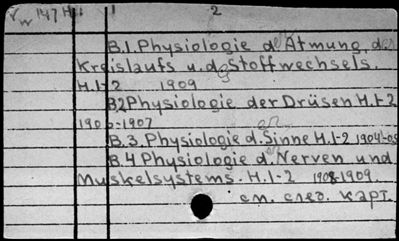 V w 147 H 1 2
B.1. Physiologie der Atmung, des
Kreislaufs u.d. Stoffwechsels.
H.1-2 1909
B2 Physiologie der Drüsen H.1-2
1906-1907
B.3. Physiologie d. Sinne H.1-2 1904-05
B.4 Physiologie d. Nerven und
Muskelsystems. H.1-2 1908-1909.
см. след. карт.